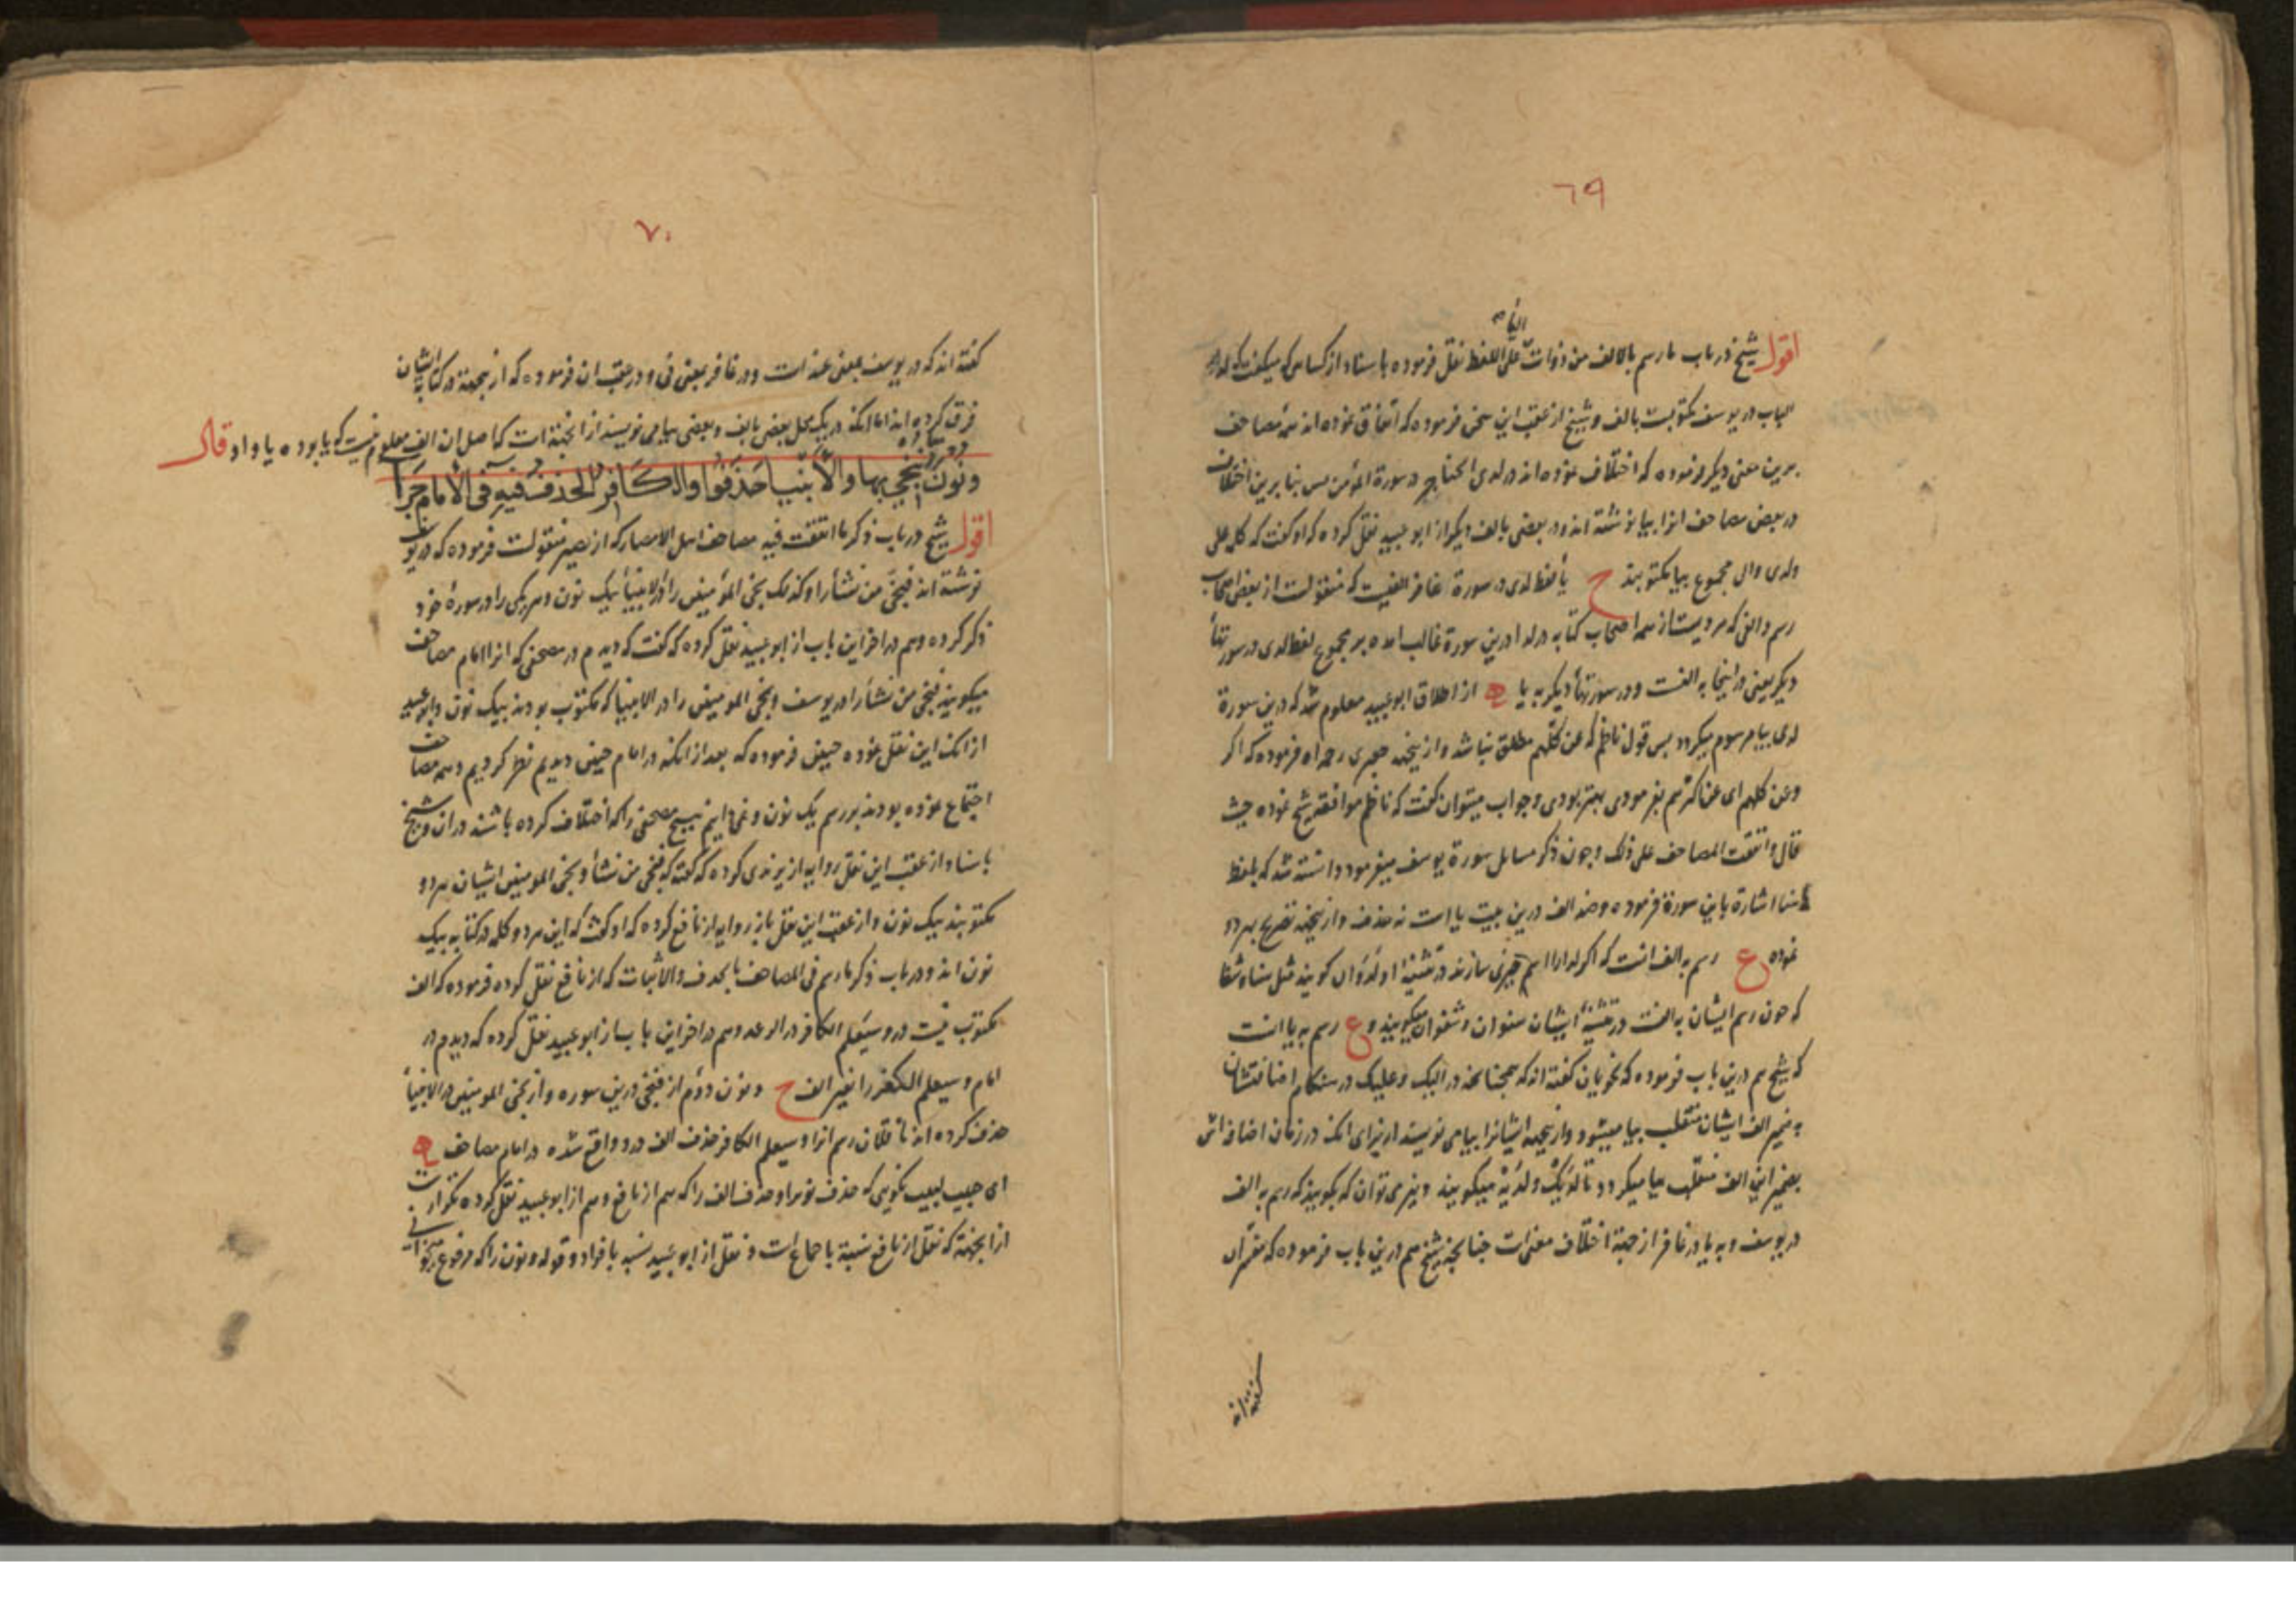 ٦٩
الیاء
اقول شیخ در باب ما رسم بالالف من ذوات علی اللفظ نقل فرموده باسناد از کسایی که میکفت که لدا
الباب در یوسف مکتوبست بالف و شیخ از عقب این سخن فرموده که اتفاق نموده اند همه مصاحف
برین معنی دیکر فرموده که اختلاف نموده اند در لدی الحناجر در سورة المؤمن بس بنا برین اختلاف
در بعض مصاحف انرا بیا نوشته اند و در بعضی بالف دیکر از ابو عبید نقل کرده که او کفت که کله علی
ولدی والی مجموع بیا مکتوبند ح یا لفظ لدی در سورة غافر الفیست که منقولست از بعض اصحاب
رسم و الفی که مرویست از همه اصحاب کتابه در لدا درین سورة غالب امده بر مجموع لفظ لدی در سورتها
دیکر یعنی در اینجا به الفست و در سورتها دیکر به یا از اطلاق ابو عبید معلوم شد که درین سورة
لدی بیا مرسوم میکردد بس قول ناظم که عن کلهم مطلق نباشد و ازینجهة جعبری رحمه الله فرموده که اکر
وعن کلهم ای عن اکثرهم بفرمودی بهتر بودی وجواب میتوان کفت که ناظم موافقة شیخ نموده حیث
قال واتفقت المصاحف علی ذلک وچون ذکر مسایل سورة یوسف میفرمود دانسته شد که بلفظ
هنا اشارة باین سورة فرموده وضد الف درین بیت یا است نه حذف وازینجهة تصریح بهردو
نموده ع رسم به الف انست که اکر لدا را اسم چیزی سازند در تثنیه او لدوان کویند مثل سنا وشفا
که چون رسم ایشان به الفست در تثنیه ایشان سنوان وشفوان میکویند و ع رسم به یا انست
که شیخ هم درین باب فرموده که نحویان کفته اند که همچنانکه در الیک وعلیک در هنکام اضافتشان
به ضمیر الف ایشان منقلب بیا میشود وازینجهة ایشانرا بیا می نویسند از برای انکه در زمان اضافه اش
بضمیر این الف منقلب بیا میکردد تا لدیک ولدیه میکویند ونیز می توان که بکویند که رسم به الف
در یوسف و به یا در غافر از جهة اختلاف معنی است چنانچه شیخ هم درین باب فرموده که مفسران
کفته اند
٧٠
کفته اند که در یوسف بمعنی عند است ودر غافر بمعنی فی ودر عقب ان فرموده که ازینجهة در کتابه ایشان
فرق کرده اند اما انکه در یک محل بعضی بالف وبعضی بیا می نویسند از انجهة است که اصل ان الف معلوم نیست که یا بوده یا واو قال
ونون ننجی بها والانبیا حذفوا والکافر الحذف فیه فی الامام جرا
اقول شیخ در باب ذکر ما اتفقت فیه مصاحف اهل الامصار که از نصیر منقولست فرموده که در یوسف
نوشته اند فنجی من نشاء را وکذلک نجی المؤمنین را در الانبیا بیک نون وهر یکی را در سورة خود
ذکر کرده وهم در اخر این باب از ابو عبید نقل کرده که کفت که دیدم در مصحفی که انرا امام مصاحف
میکویند فنجی من نشاء را در یوسف ونجی المومنین را در الانبیا که مکتوب بودند بیک نون وابو عبید
از انک این نقل نموده چنین فرموده که بعد از انکه در امام چنین دیدیم نظر کردیم وهمه مصاحف
اجتماع نموده بودند بر رسم یک نون ونمی دانیم هیچ مصحفی را که اختلاف کرده باشند در ان وشیخ
باسناد از عقب این نقل روایه از یزیدی کرده که کفت که فنجی من نشاء ونجی المومنین ایشان هردو
مکتوبند بیک نون واز عقب این نقل باز روایه از نافع کرده که او کفت که این هردو کله در کتابه بیک
نون اند ودر باب ذکر ما رسم فی المصاحف بالحذف والاثبات که از نافع نقل کرده فرموده که الف
مکتوب نیست در وسیعلم الکافر در الرعد وهم در اخر این باب از ابو عبید نقل کرده که دیدم در
امام وسیعلم الکفر را بغیر الف ح ونون دوم از فنجی درین سوره واز نجی المومنین در الانبیا
حذف کرده اند ناقلان رسم انرا وسیعلم الکافر حذف الف درو واقع شده در امام مصاحف
ای حبیب لبیب نکویی که حذف نون را وحذف الف را که هم از نافع وهم از ابو عبید نقل کرده تکرار
ازانجهة که نقل از نافع نسبة باجماع است ونقل از ابو عبید نسبه بافراد وقوله ونون را که مرفوع